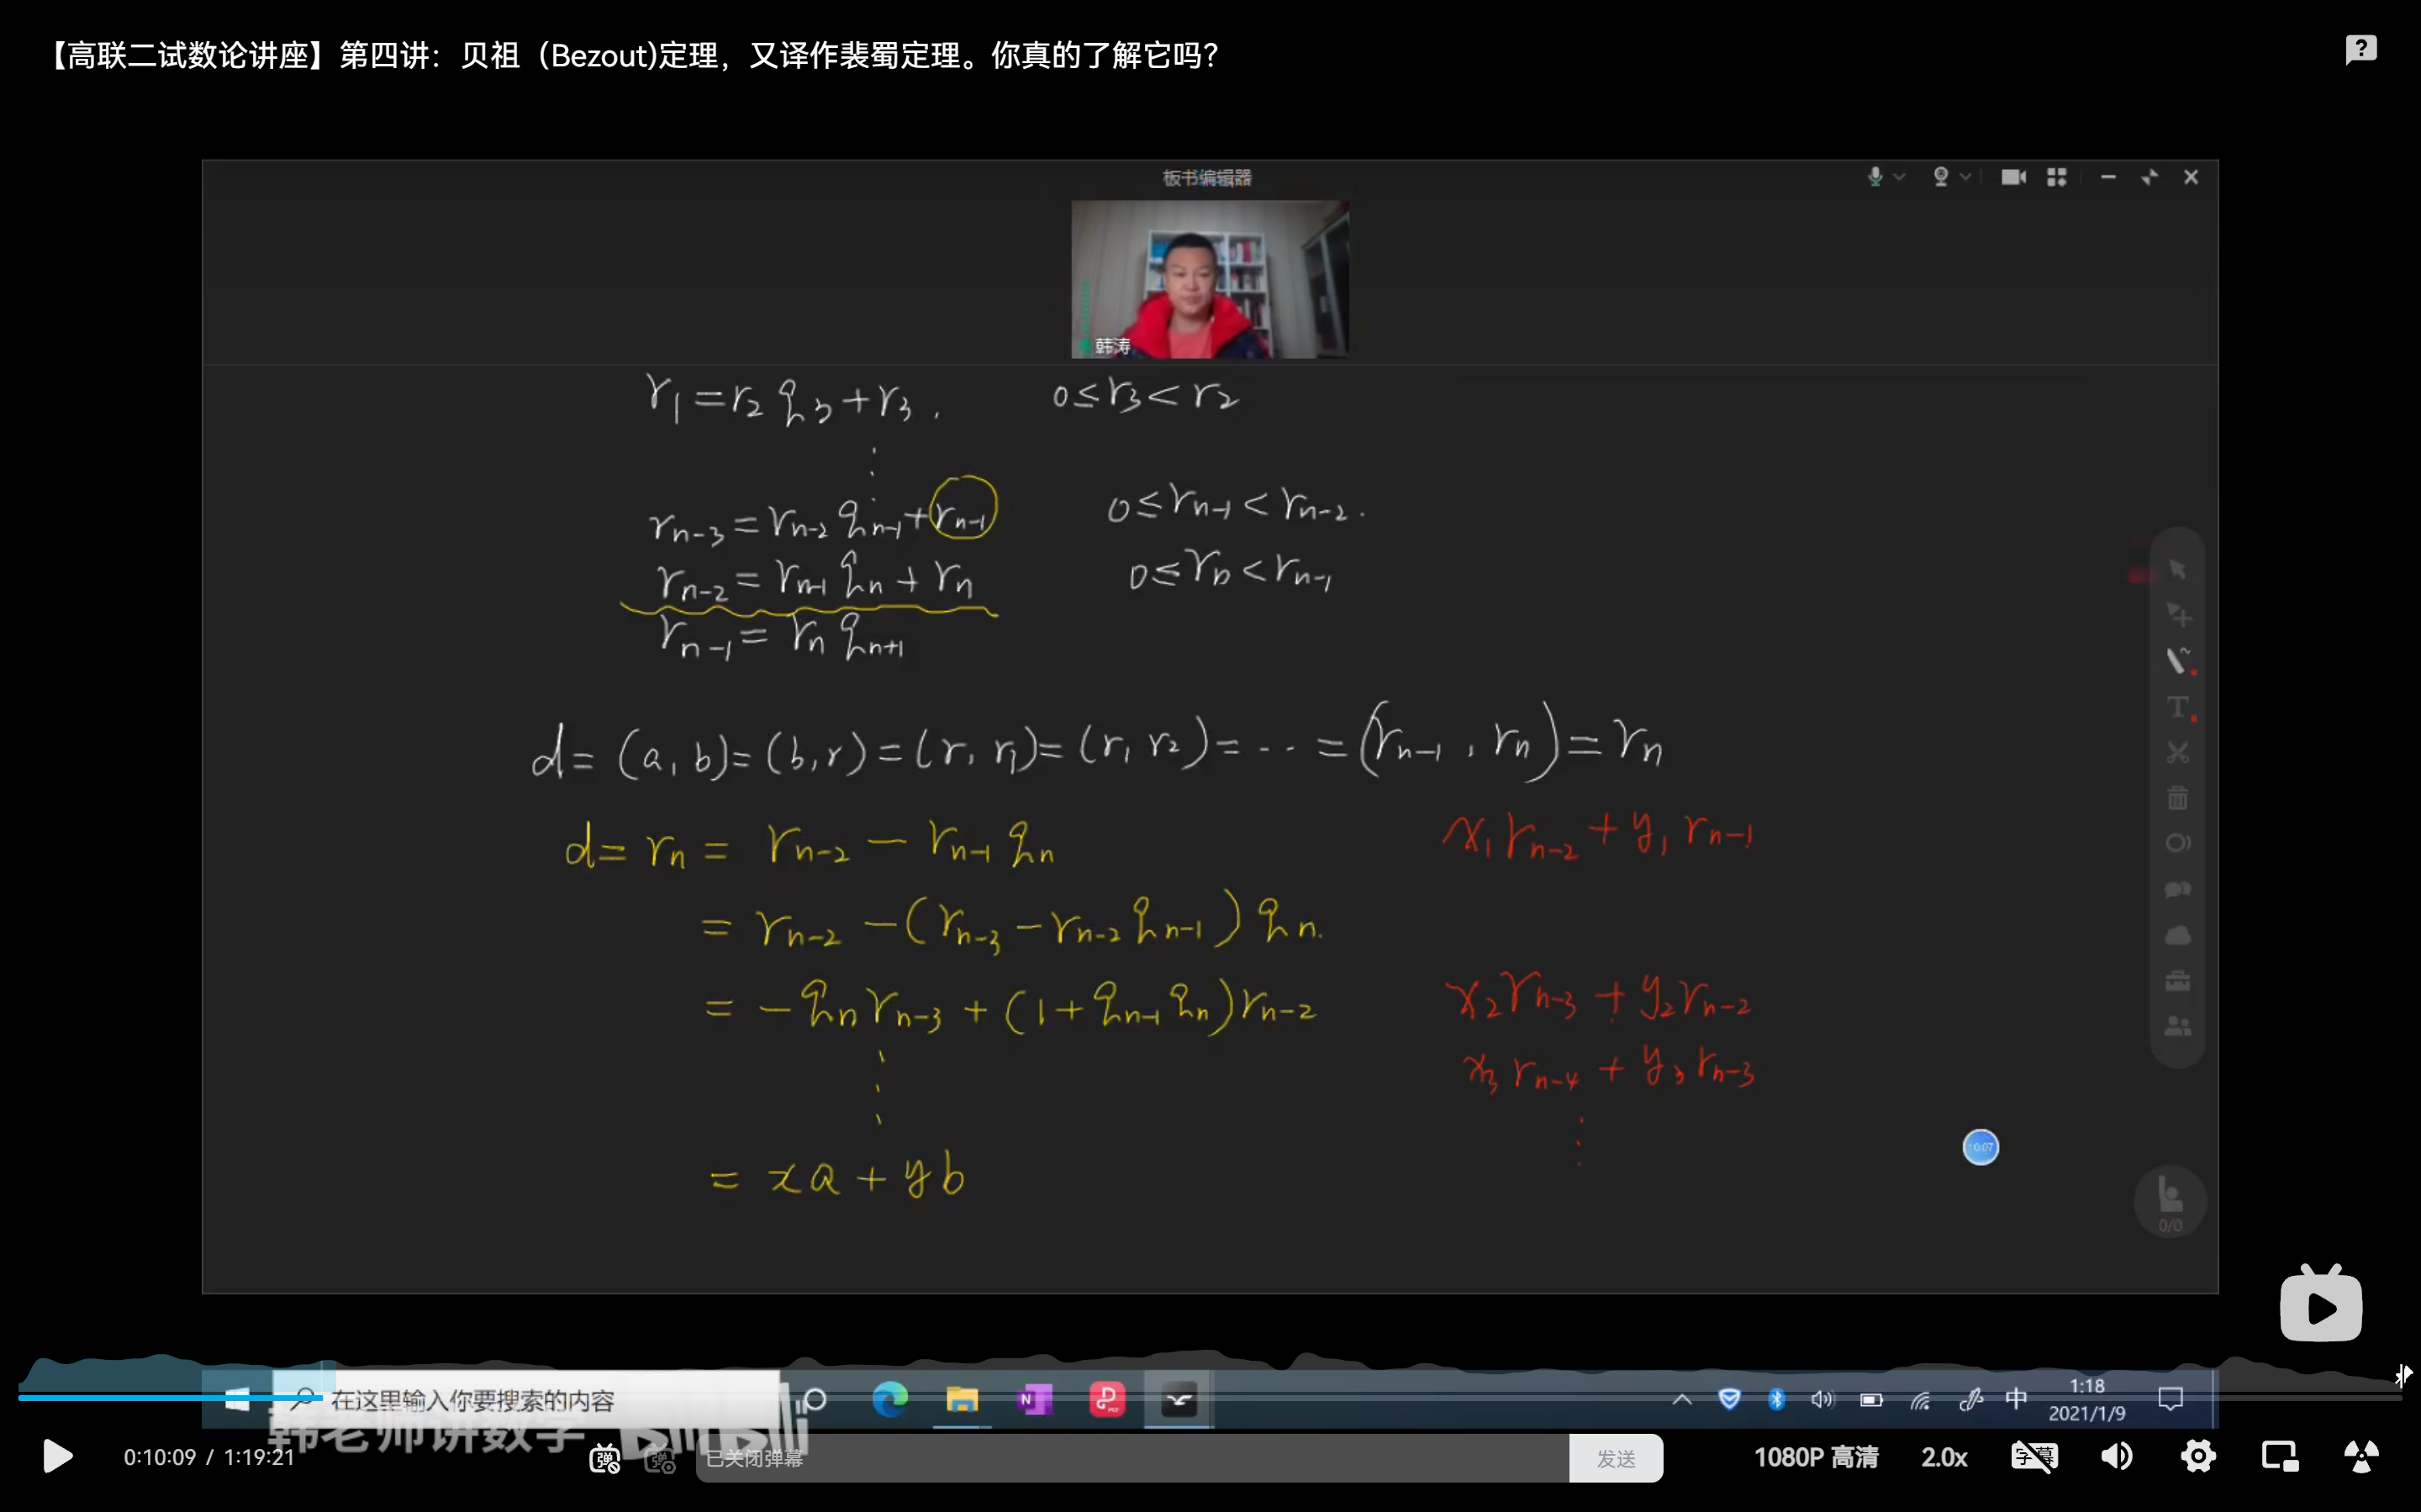 【高联二试数论讲座】第四讲：贝祖（Bezout)定理，又译作裴蜀定理。你真的了解它吗？
板书编辑器
韩涛
r₁=r₂q₃+r₃. 0≤r₃<r₂
⋮
rₙ₋₃=rₙ₋₂qₙ₋₁+rₙ₋₁ 0≤rₙ₋₁<rₙ₋₂.
rₙ₋₂=rₙ₋₁qₙ+rₙ 0≤rₙ<rₙ₋₁
rₙ₋₁=rₙqₙ₊₁
d=(a,b)=(b,r)=(r,r₁)=(r₁ r₂)=⋯=(rₙ₋₁,rₙ)=rₙ
d=rₙ=rₙ₋₂-rₙ₋₁qₙ x₁rₙ₋₂+y₁rₙ₋₁
=rₙ₋₂-(rₙ₋₃-rₙ₋₂qₙ₋₁)qₙ.
=-qₙrₙ₋₃+(1+qₙ₋₁qₙ)rₙ₋₂ x₂rₙ₋₃+y₂rₙ₋₂
⋮ x₃rₙ₋₄+y₃rₙ₋₃
⋮
=xa+yb
10:07
0/0
在这里输入你要搜索的内容
中
1:18
2021/1/9
韩老师讲数学 bilibili
0:10:09 / 1:19:21
弹
已关闭弹幕
发送
1080P 高清
2.0x
字幕